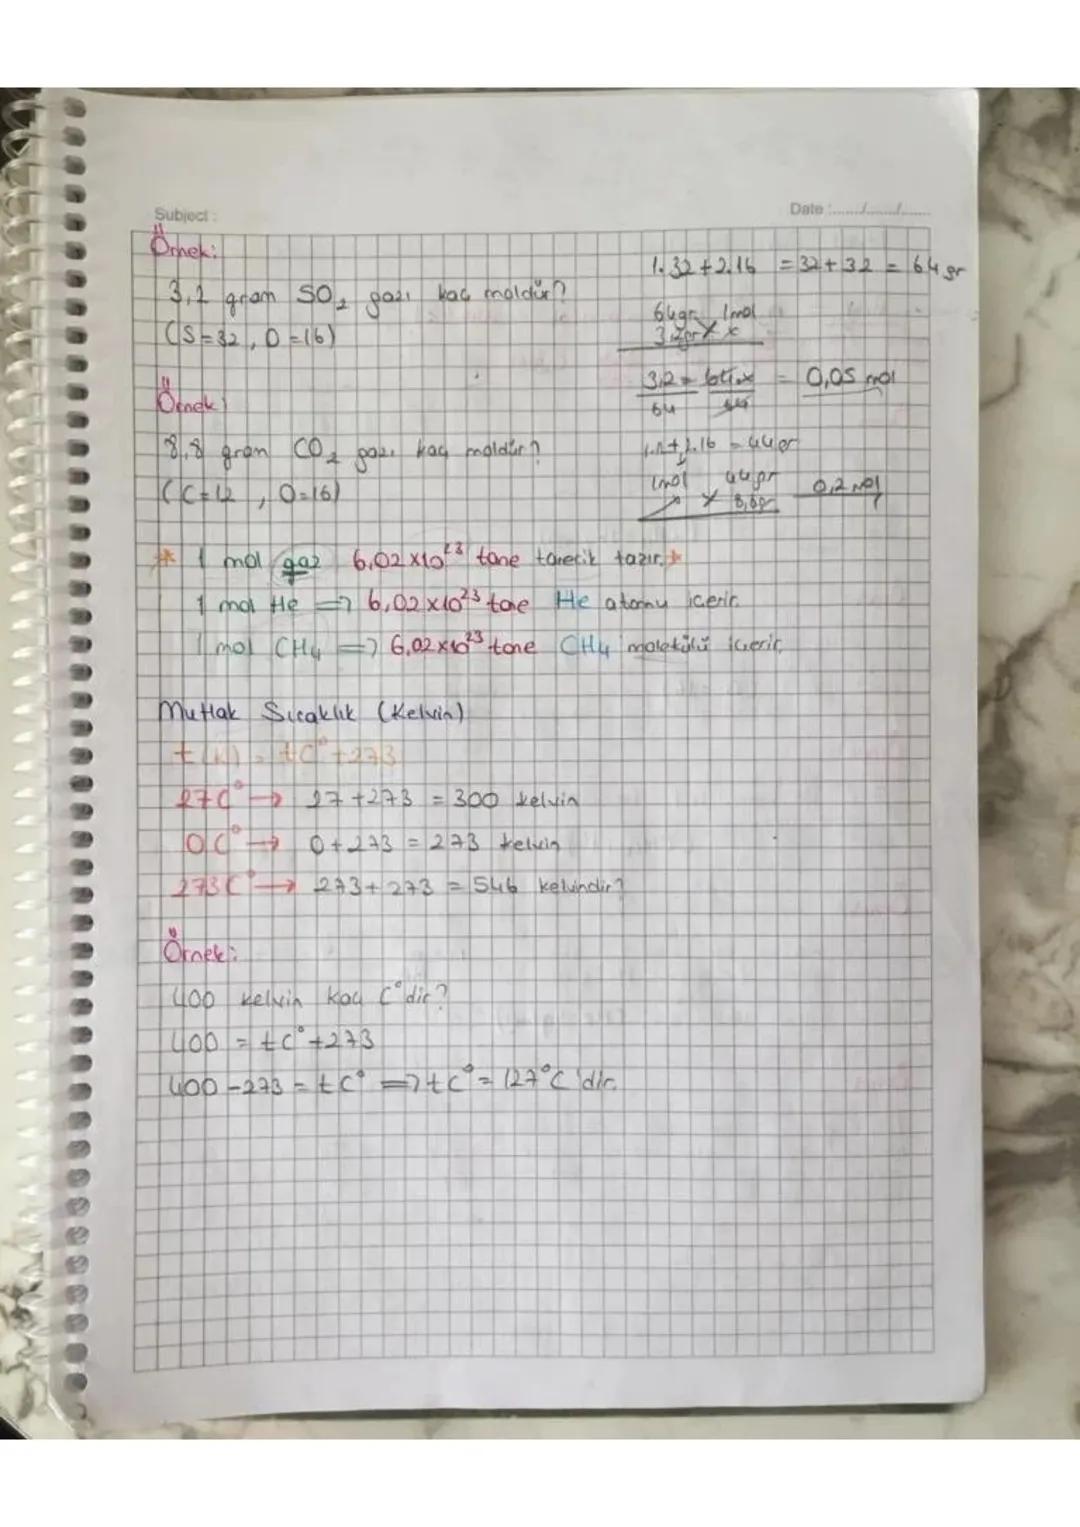 Subject :
Date :......./......./.......
Örnek:
3,2 gram SO₂ gazı kaç moldür?
(S=32, O=16)
1.32+2.16 = 32+32 = 64 gr
64gr 1mol
3,2gr x
3,2 = 64.x = 0,05 mol
64 64
Örnek)
8,8 gram CO₂ gazı kaç moldür?
(C=12, O=16)
1.12+2.16 = 44gr
1mol 44gr
x 8,8gr 0,2 mol
* 1 mol gaz 6,02x10²³ tane tanecik taşır.*
1 mol He => 6,02x10²³ tane He atomu içerir.
1 mol CH₄ => 6,02x10²³ tane CH₄ molekülü içerir.
Mutlak Sıcaklık (Kelvin)
t(K) = tC°+273
27C° → 27+273 = 300 kelvin
0C° → 0+273 = 273 kelvin
273C° → 273+273 = 546 kelvindir?
Örnek:
400 kelvin kaç C°dir?
400 = tC°+273
400-273 = tC° => tC° = 127°C'dir.